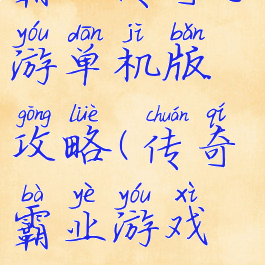 yóu dān jī bǎn
游单机版
gōng lüè chuán qí
攻略(传奇
bà yè yóu xì
霸业游戏